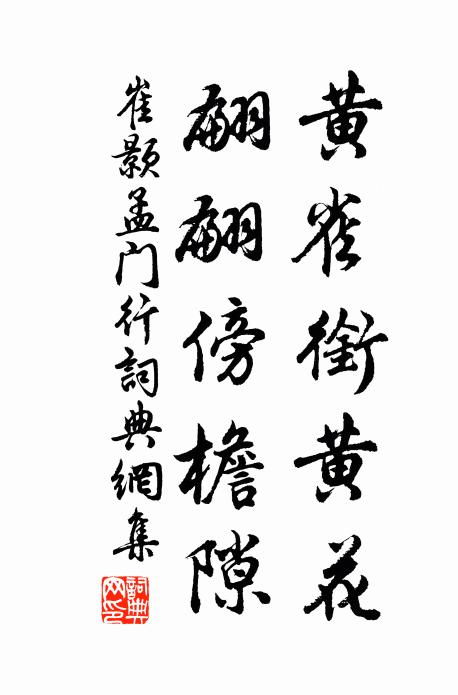 黄雀銜黄花
翩翩傍檐隙
崔颢孟门行詞典網集
詞典网印